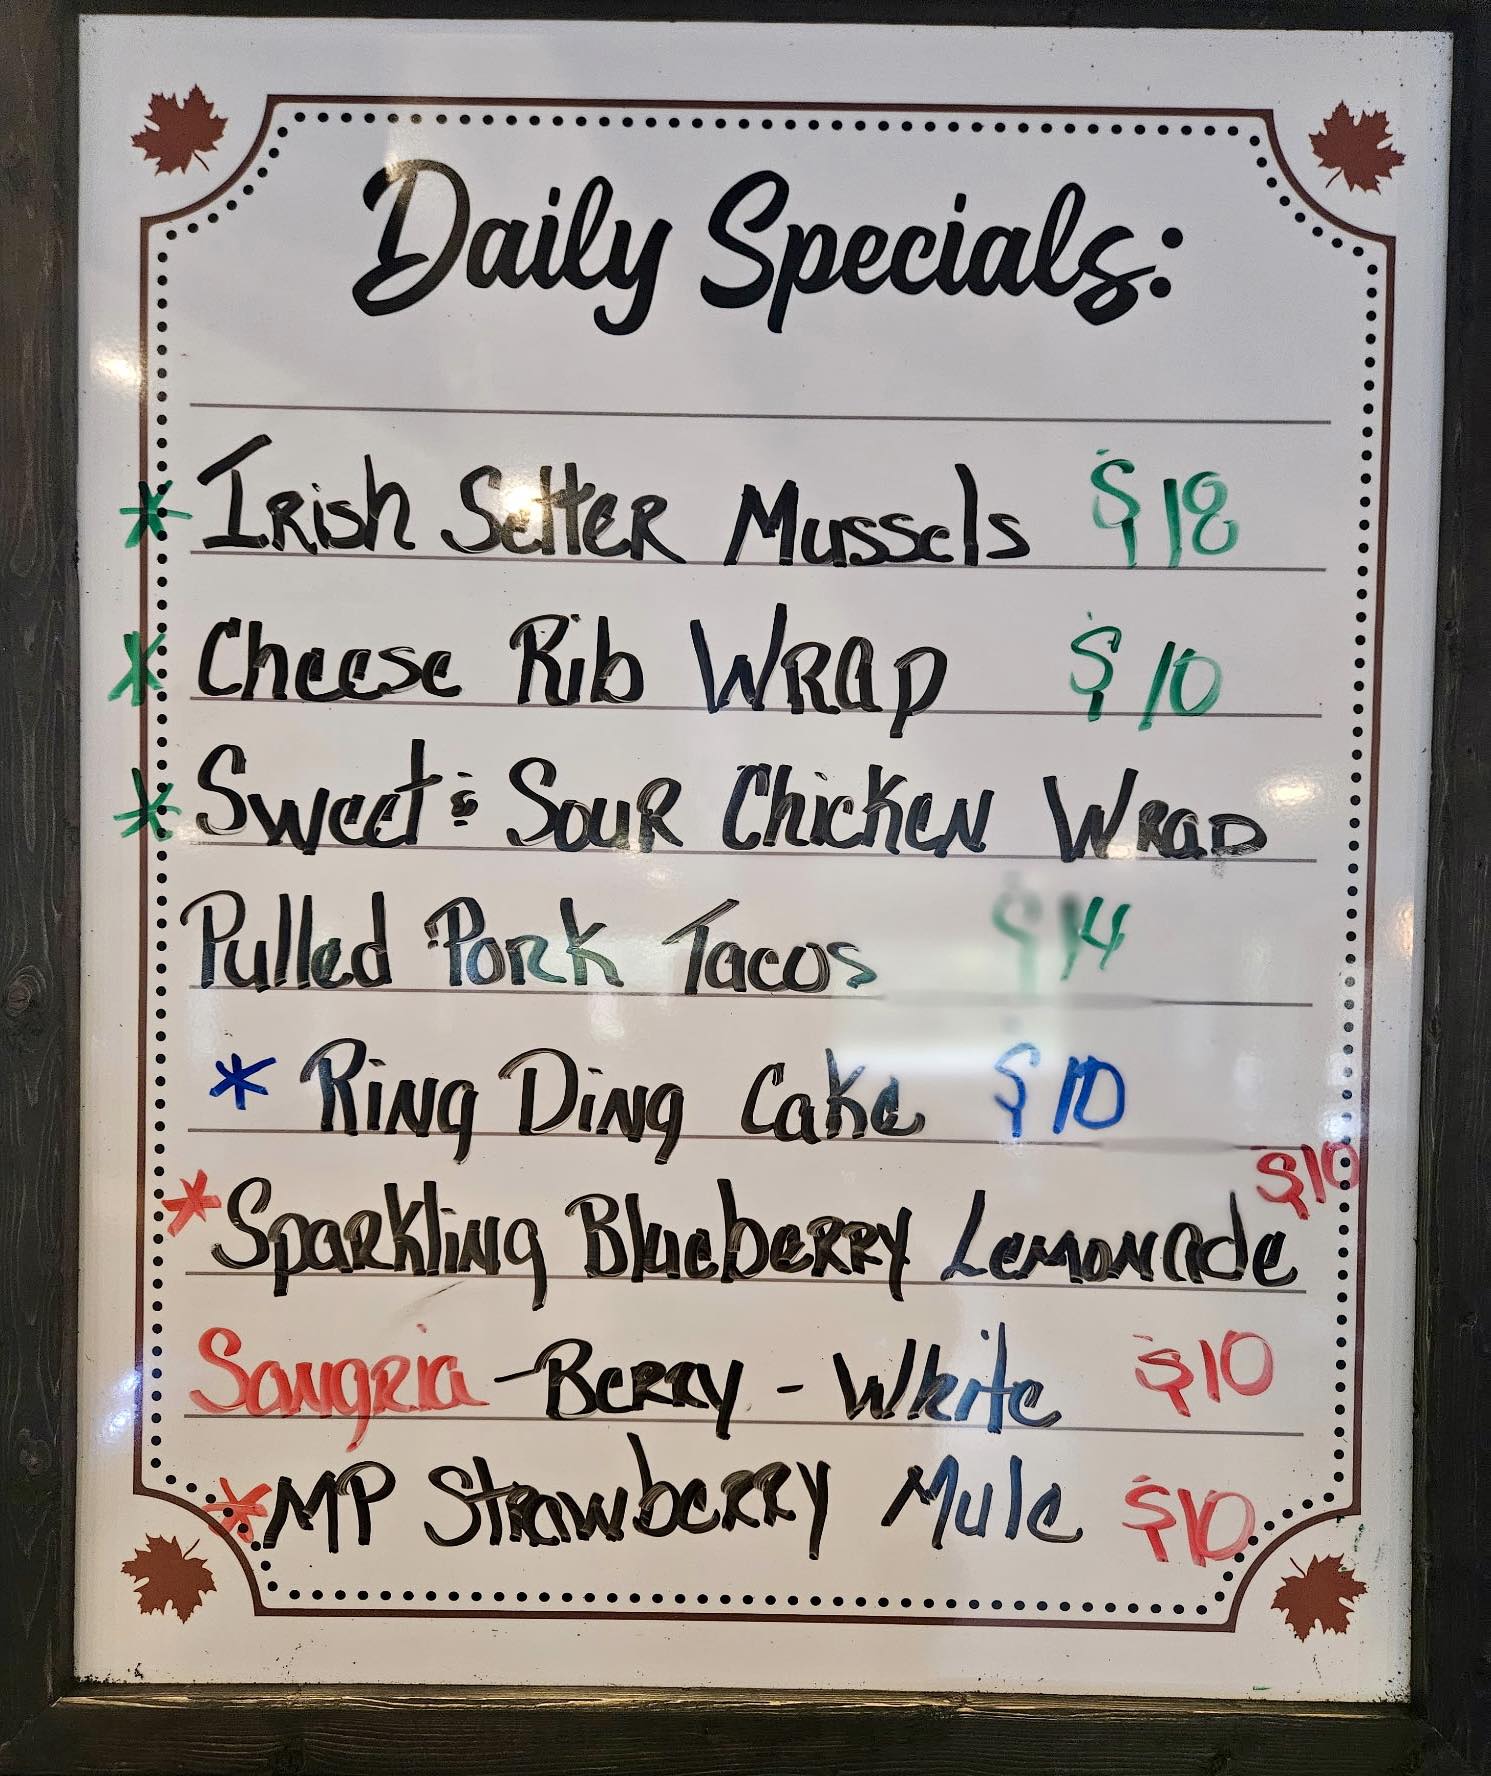 Daily Specials:
* Irish Setter Mussels $18
* Cheese Rib Wrap $10
* Sweet & Sour Chicken Wrap
Pulled Pork Tacos $14
* Ring Ding Cake $10
* Sparkling Blueberry Lemonade $10
Sangria - Berry - White $10
* MP Strawberry Mule $10